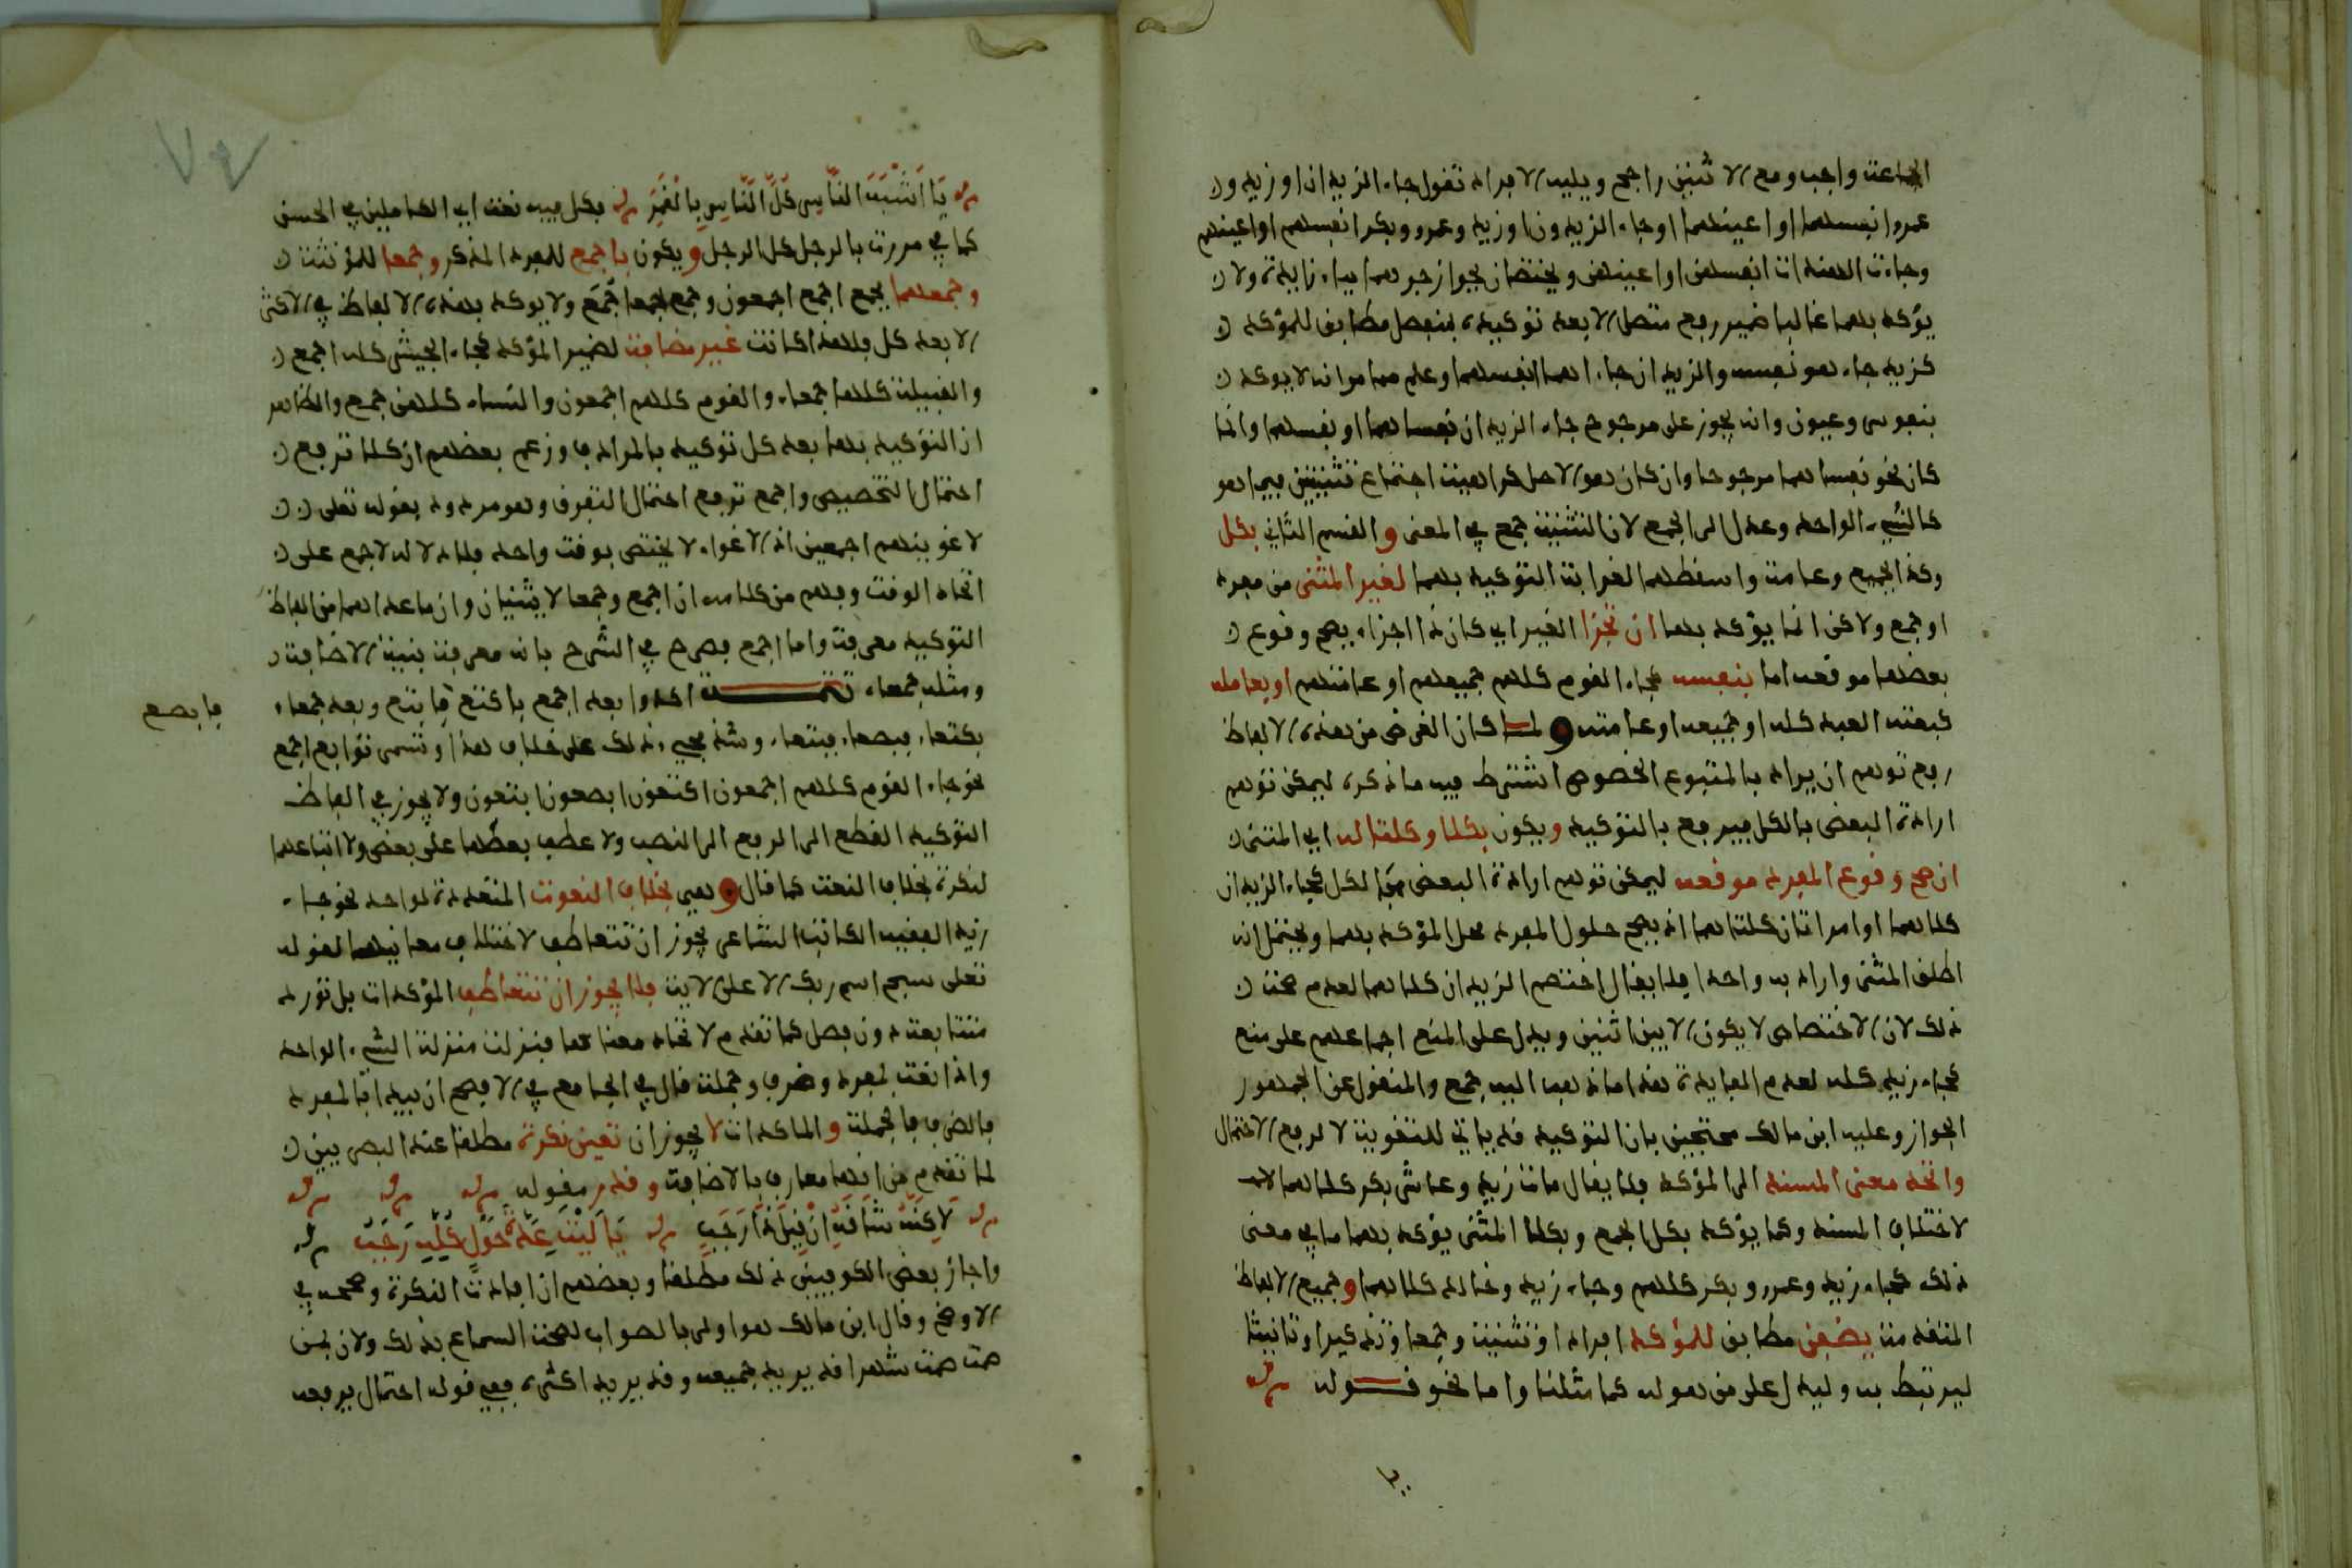 الجماعة واجب ومع الاثنين راجح ويليه الافراد تقول جاء الزيدان او زيد و
عمرو انفسهما او اعينهما او جاء الزيدون او زيد وعمرو وبكر انفسهم او اعينهم
وجاءت الهندات انفسهن او اعينهن ويختصان بجواز جرهما بباء زايدة ولا
يؤكد بهما غالبا ضمير رفع متصل الا بعد توكيده بمنفصل مطابق للمؤكد
كزيد جاء هو نفسه والزيدان جاءا هما انفسهما وعلم مما مر انه لا يوكد
بنفوس وعيون وانه يجوز على مرجوح جاء الزيدان نفساهما او نفسهما وانما
كان نحو نفساهما مرجوحا وان كان هو الاصل كراهية اجتماع تثنيتين فيما هو
كالشيء الواحد وعدل الى الجمع لان التثنية جمع في المعنى والقسم الثاني بكل
وكذا الجميع وعامة واسقطهما لغرابة التوكيد بهما لغير المثنى من مفرد
او جمع ولاكن انما يؤكد بهما ان تجزا الغير اي كان ذا اجزاء يصح وقوع
بعضها موقعه اما بنفسه كجاء القوم كلهم جميعهم او عامتهم او بعامله
كبعته العبد كله او جميعه او عامته ولما كان الغرض من هذه الالفاظ
رفع توهم ان يراد بالمتبوع الخصوص اشترط فيه ما ذكره ليمكن توهم
ارادة البعض بالكل فيرفع بالتوكيد ويكون بكلا وكلتا له اي المثنى
ان صح وقوع المفرد موقعه ليمكن توهم ارادة البعض بالكل كجاء الزيدان
كلاهما او امراتان كلتاهما اذ يصح حلول المفرد محل المؤكد بهما ويحتمل انه
اطلق المثنى واراد به واحدا فلا يقال اختصم الزيدان كلاهما لعدم صحة
ذلك لان الاختصاص لا يكون الا بين اثنين ويدل على المنع اجماعهم على منع
كجاء زيد كله لعدم الفايدة هذا ما ذهب اليه جمع والمنقول عن الجمهور
الجواز وعليه ابن مالك محتجين بان التوكيد قد ياتي للتقوية لا لرفع الاحتمال
واتحد معنى المسند الى المؤكد فلا يقال مات زيد وعاش بكر كلاهما
لاختلاف المسند وكما يؤكد بكل الجمع وبكلا المثنى يؤكد بهما ما في معنى
ذلك كجاء زيد وعمرو وبكر كلهم وجاء زيد وخالد كلاهما وجميع الالفاظ
المتقدمة يضفن مطابق للمؤكد افرادا وتثنية وجمعا وتذكيرا وتانيثا
ليرتبط به وليدل على من هو له كما مثلنا واما نحو قوله
يَا أَشْبَهَ النَّاسِ كُلِّ النَّاسِ بِالْقَمَرِ فكل فيه نعت اي الكاملين في الحسن
كما في مررت بالرجل كل الرجل ويكون باجمع للمفرد المذكر وجمعا للمؤنثة
وجمعهما يجمع اجمع اجمعون وجمع جمعا جُمَع ولا يوكد بهذه الالفاظ في الاكثر
الا بعد كل فلهذا كانت غير مضافة لضمير المؤكد كجاء الجيش كله اجمع
والقبيلة كلها جمعاء والقوم كلهم اجمعون والنساء كلهن جمع والظاهر
ان التوكيد بها بعد كل توكيد بالمرادف وزعم بعضهم ان كلا ترفع
احتمال التخصيص واجمع ترفع احتمال التفرق وهو مردود بقوله تعلى
لاغوينهم اجمعين اذ الاغواء لا يختص بوقت واحد فلا دلالة لاجمع على
اتحاد الوقت وفهم من كلامه ان اجمع وجمعا لا يثنيان وان ما عداهما من الفاظ
التوكيد معرفة واما اجمع فصرح في الشرح بانه معرفة بنية الاضافة
ومثله جمعاء تتمة اكدوا بعد اجمع باكتع فابتع وبعد جمعاء
فابصع
بكتعاء فبصعاء فبتعاء وشذ مجيء ذلك على خلاف هذا وتسمى توابع اجمع
نحو جاء القوم كلهم اجمعون اكتعون ابصعون ابتعون ولا يجوز في الفاظ
التوكيد القطع الى الرفع الى النصب ولا عطف بعضها على بعض ولا اتباعها
لنكرة بخلاف النعت كما قال وهي بخلاف النعوت المتعددة لواحد نحو جاء
زيد الفقيه الكاتب الشاعر يجوز ان تتعاطف لاختلاف معانيها لقوله
تعلى سبح اسم ربك الاعلى الاية فلا يجوز ان تتعاطف المؤكدات بل تورد
متتابعة دون فصل كما تقدم لاتحاد معناها فنزلت منزلة الشيء الواحد
واذا نعت بمفرد وظرف وجملة قال في الجامع في الافصح ان يبدا بالمفرد
فالظرف فالجملة والمؤكدات لا يجوز ان تتبعن نكرة مطلقا عند البصريين
لما تقدم من انها معارف بالاضافة وندر قوله
لَاكِنَّهُ شَاقَهُ أَنْ قِيلَ ذَا رَجَبٌ يَا لَيْتَ عِدَّةَ حَوْلٍ كُلِّهِ رَجَبُ
واجاز بعض الكوفيين ذلك مطلقا وبعضهم ان افادت النكرة وصححه في
الاوضح وقال ابن مالك هو اولى بالصواب لصحة السماع بذلك ولان من
صمت شهرا قد يريد جميعه وقد يريد اكثره ففي قوله احتمال يرفعه